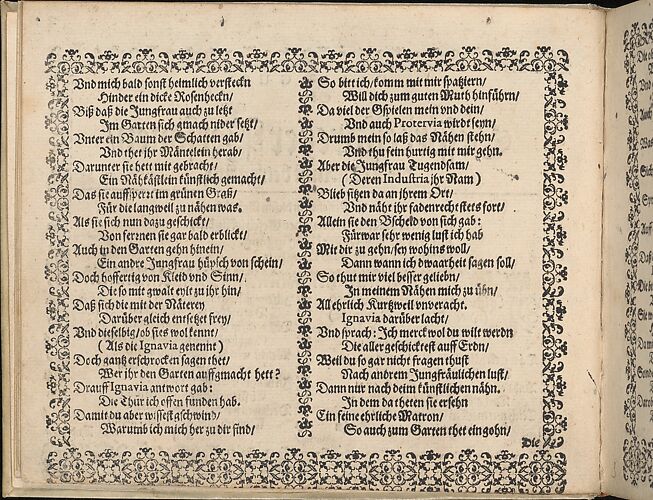 Vnd mich bald sonst heimlich versteckn
Hinder ein dicke Rosenheckn/
Biß daß die Jungfrau auch zu letzt
Im Garten sich gmach nider setzt/
Vnter ein Baum der Schatten gab/
Vnd thet jhr Mäntelein herab/
Darunter sie hett mit gebracht/
Ein Nähkästlein künstlich gemacht/
Das sie auffsperet im grünen Graß/
Für die langweil zu nähen was.
Als sie sich nun dazu geschickt/
Von ferenen sie gar bald erblickt/
Auch in den Garten gehn hinein/
Ein andre Jungfrau hübsch von schein/
Doch hoffertig von Kleid vnd Sinn/
Die so mit gwalt eylt zu jhr hin/
Daß sich die mit der Näterey
Darüber gleich entsetzet frey/
Vnd dieselbig/ob sies wol kennt/
(Als die Ignavia genennt)
Doch gantz erschrocken sagen thet/
Wer jhr den Garten auffgmacht hett?
Drauff Ignavia antwort gab:
Die Thür ich offen funden hab.
Damit du aber wissest gschwind/
Warumb ich mich her zu dir find/
So bitt ich/komm mit mir spatziern/
Will dich zum guten Muth hinführn/
Da viel der Gspielen mein vnd dein/
Vnd auch Protervia wirdt seyn/
Drumb mein so laß das Nähen stehn/
Vnd thu fein hurtig mit mir gehn.
Aber die Jungfrau Tugendsam/
(Deren Industria jhr Nam)
Blieb sitzen da an jhrem Ort/
Vnd näht jhr fadenrecht stets fort/
Allein sie den Bscheld von sich gab:
Fürwar sehr wenig lust ich hab
Mit dir zu gehn/sey wohins woll/
Dann wann ich dwaarheit sagen soll/
So thut mir viel besser geliebn/
In meinem Nähen mich zu übn/
All ehrlich Kurtzweil vnveracht.
Ignavia darüber lacht/
Vnd sprach: Ich merck wol du wilt werdn
Die aller geschicktest auff Erdn/
Weil du so gar nicht fragen thust
Nach andrem Jungfräulichen lust/
Dann nur nach deim künstlichen nähn.
In dem da theten sie ersehn
Ein feine ehrliche Matron/
So auch zum Garten thet eingohn/
Die